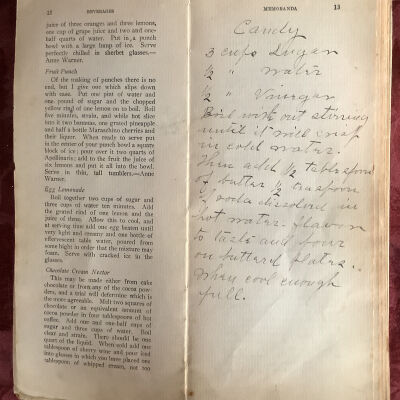 12 BEVERAGES
juice of three oranges and three lemons,
one cup of grape juice and two and one-
half quarts of water. Put in a punch
bowl with a large lump of ice. Serve
perfectly chilled in sherbet glasses.—
Anne Warner.
Fruit Punch
Of the making of punches there is no
end, but I give one which slips down
with ease. Put one pint of water and
one pound of sugar and the chopped
yellow rind of one lemon on to boil. Boil
five minutes, strain, and while hot slice
into it two bananas, one grated pineapple
and half a bottle Maraschino cherries and
their liquor. When ready to serve put
in the center of your punch bowl a square
block of ice; pour over it two quarts of
Apollinaris; add to the fruit the juice of
six lemons and put it all into the bowl.
Serve in thin, tall tumblers.—Anne
Warner.
Egg Lemonade
Boil together two cups of sugar and
three cups of water ten minutes. Add
the grated rind of one lemon and the
juice of three. Allow this to cool, and
at serving time add one egg beaten until
very light and creamy and one bottle of
effervescent table water, poured from
some height in order that the mixture may
foam. Serve with cracked ice in the
glasses.
Chocolate Cream Nectar
This may be made either from cake
chocolate or from any of the cocoa pow-
ders, and a trial will determine which is
the more agreeable. Melt two squares of
chocolate or an equivalent amount of
cocoa powder in four tablespoons of hot
coffee. Add one and one-half cups of
sugar and three cups of water. Boil
clear and strain. There should be one
quart of the liquid. When cold add one
tablespoon of sherry wine and pour iced
into glasses in which you have placed one
tablespoon of whipped cream, not too
MEMORANDA 13
Candy
3 cups Sugar
1/2 " water
1/2 " Vinegar
Boil with out stirring
until it will snap
in cold water.
Then add 1/2 tablespoon
of butter 1/2 teaspoon
of soda dissolved in
hot water. flavor
to taste and pour
on buttered plates.
When cool enough
pull.